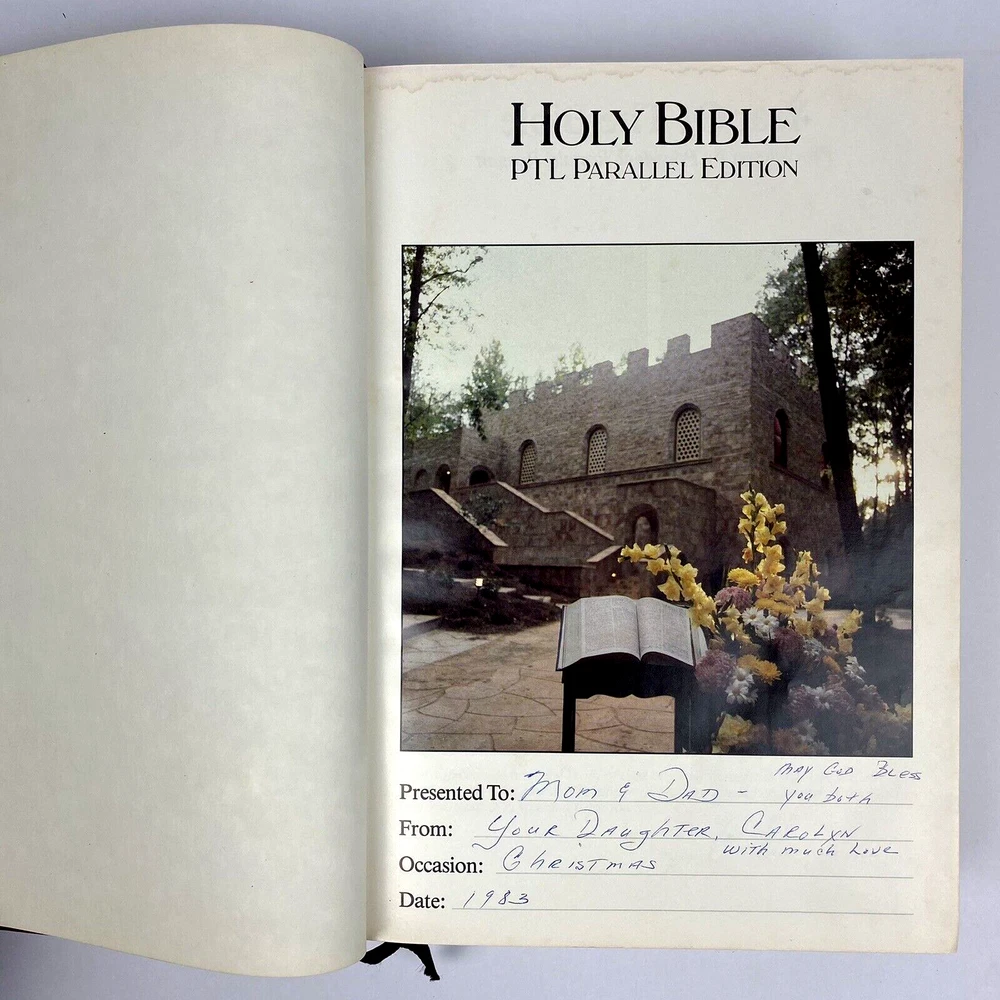 HOLY BIBLE
PTL PARALLEL EDITION
May God Bless
Presented To: Mom & Dad - you both
From: Your Daughter, Carolyn
with much Love
Occasion: Christmas
Date: 1983